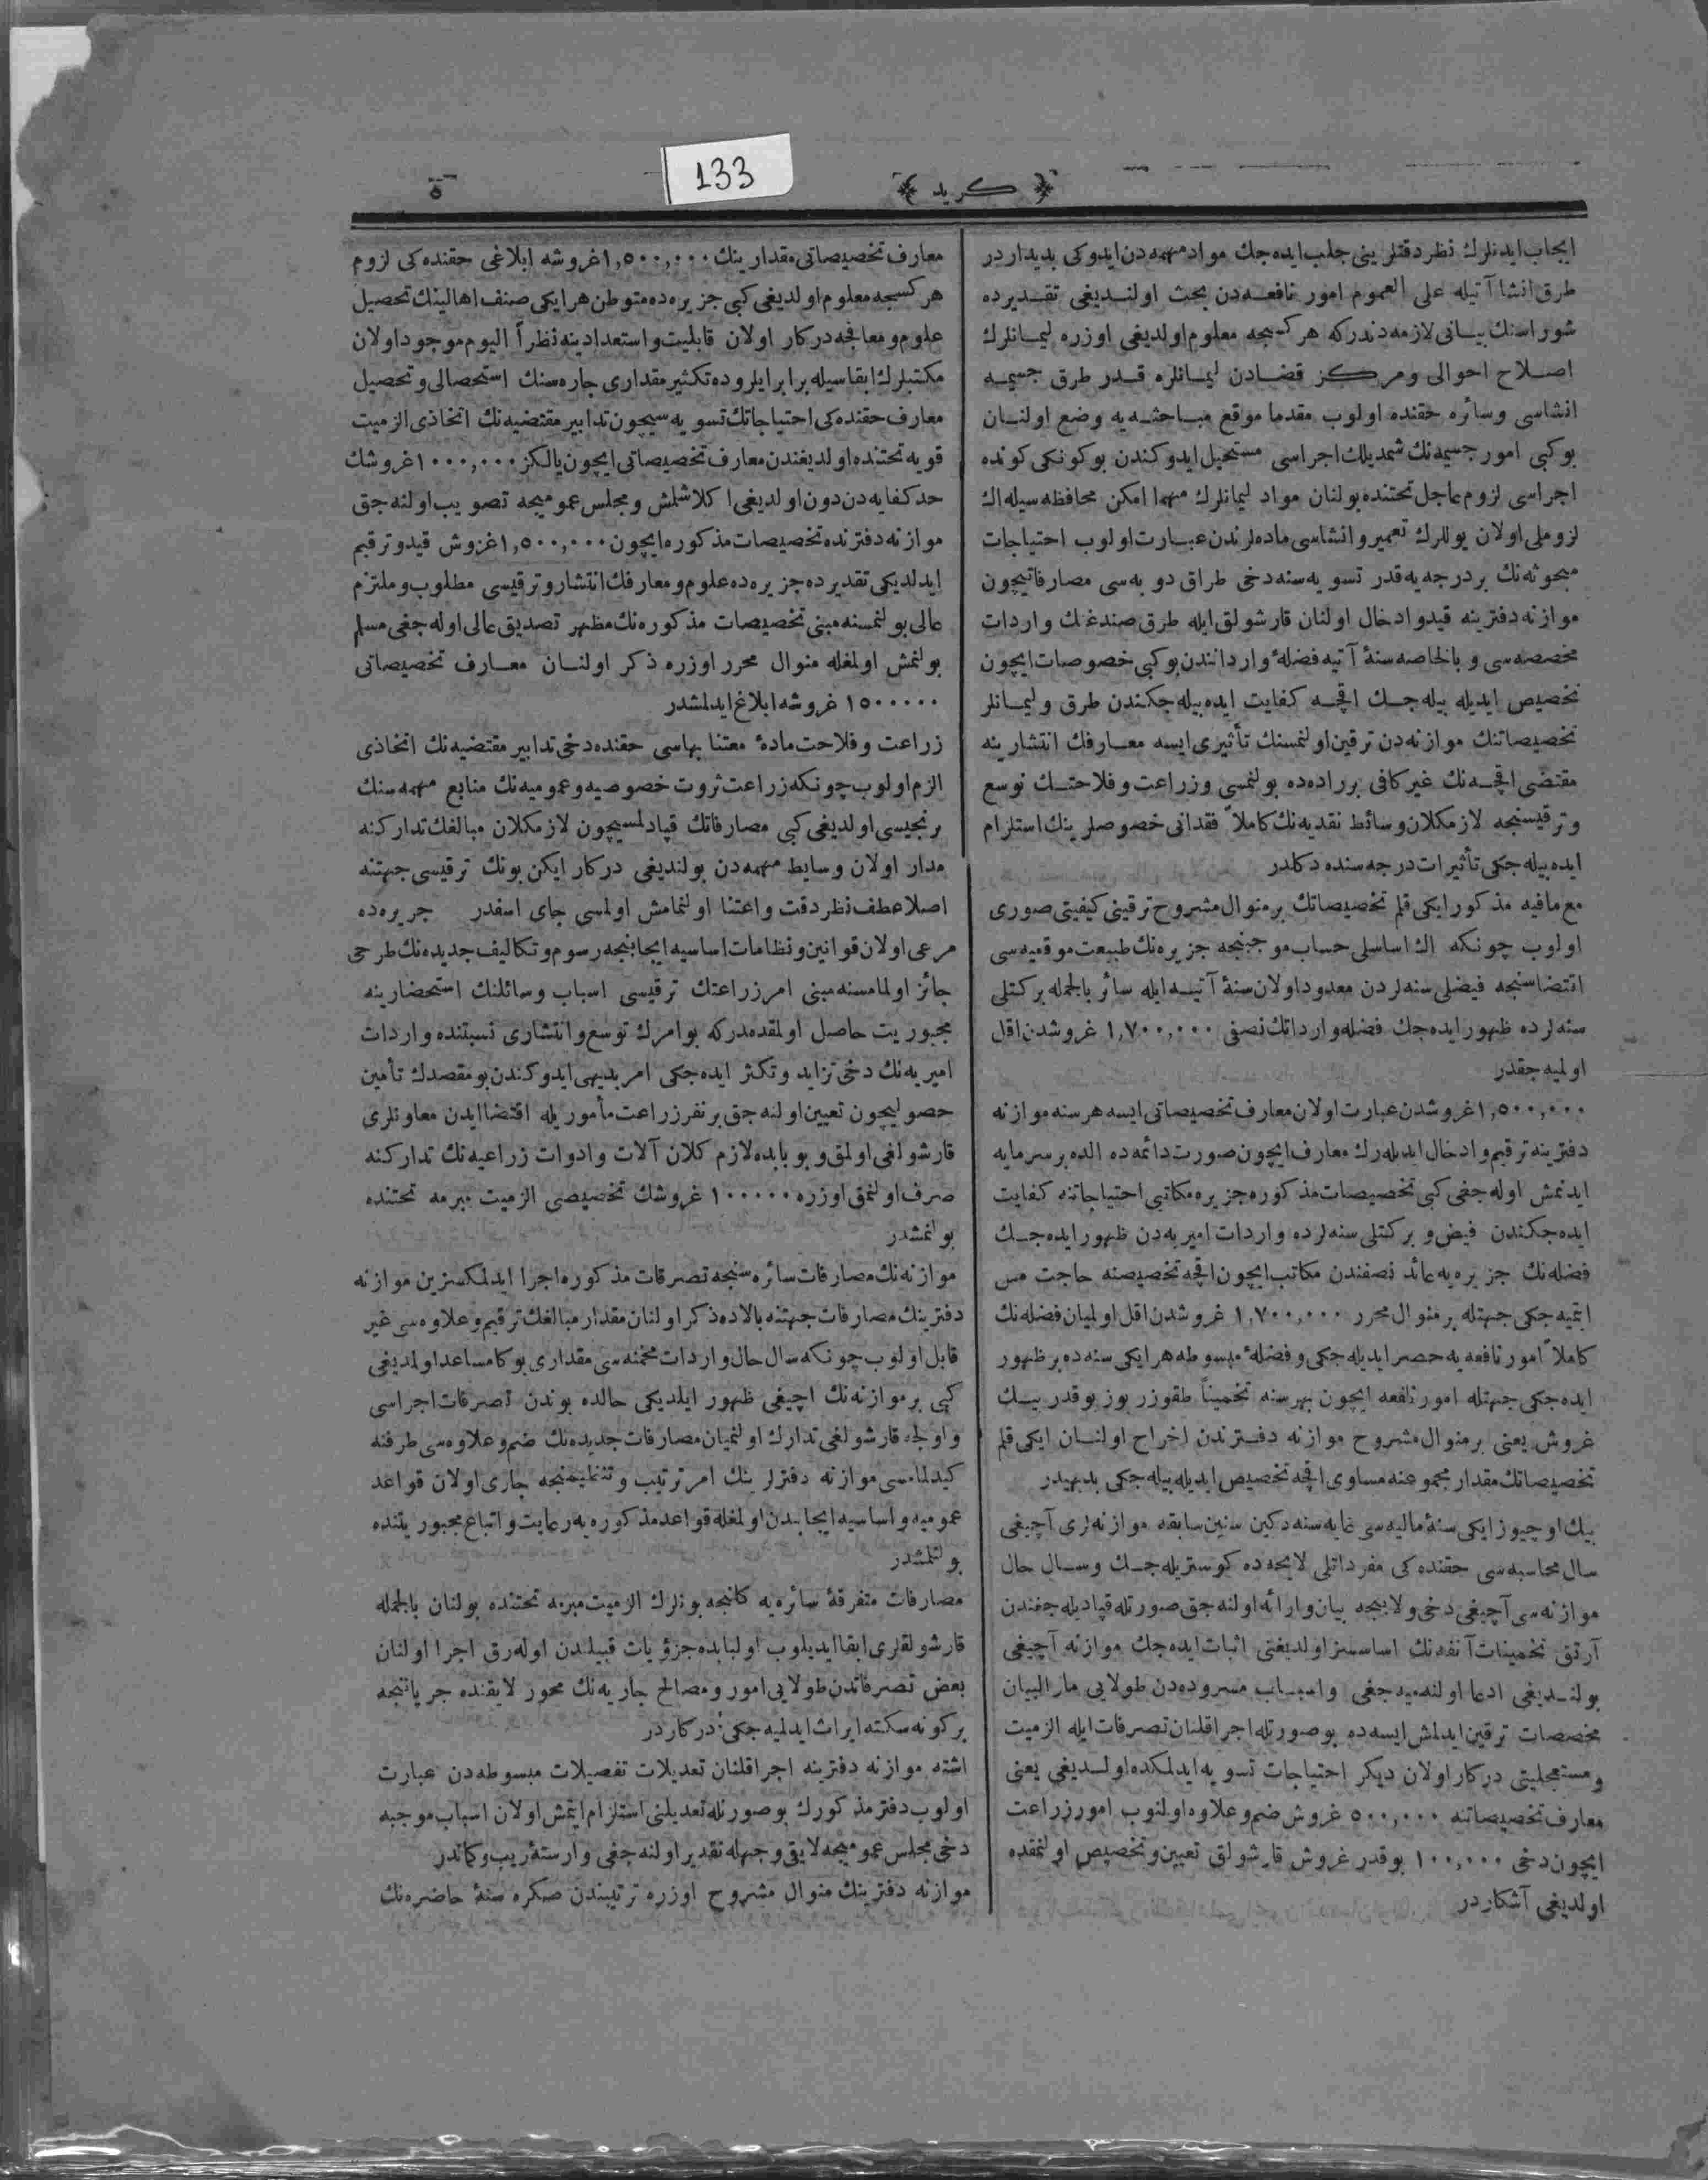 133
﴿ كريد ﴾
٥
ايجاب ايدنلرك نظر دقتلرينى جلب ايده‌جك مواد مهمه‌دن ايدوكى بديدار در
طرق انشا آتيله على العموم امور نافعه‌دن بحث اولنديغى تقديرده
شوراسنك بيانى لازمه‌دندركه هر كسجه معلوم اولديغى اوزره ليمانلرك
اصلاح احوالى و مركز قضادن ليمانلره قدر طرق جسيمه
انشاسى وسائره حقنده اولوب مقدما موقع مباحثه‌يه وضع اولنان
بوكبى امور جسيمه‌نك شمديلك اجراسى مستحيل ايدوكندن بوكونكى كونده
اجراسى لزوم عاجل تحتنده بولنان مواد ليمانلرك مهما امكن محافظه‌سيله اك
لزوملى اولان يوللرك تعمير و انشاسى ماده‌لرندن عبارت اولوب احتياجات
مبحوثه‌نك بر درجه‌يه قدر تسويه‌سنه دخى طراق دوبه‌سى مصارفاتيچون
موازنه دفترينه قيد و ادخال اولنان قارشولق ايله طرق صندغنك واردات
مخصصه‌سى و بالخاصه سنهٔ آتيه فضلهٔ وارداتندن بوكبى خصوصات ايچون
تخصيص ايديله بيله‌جك اقچه كفايت ايده بيله‌جكندن طرق و ليمانلر
تخصيصاتنك موازنه‌دن ترقين اولنمسنك تأثيرى ايسه معارفك انتشارينه
مقتضى اقچه‌نك غير كافى بر راده‌ده بولنمسى و زراعت و فلاحتك توسع
و ترقيسنجه لازمكلان وسائط نقديه‌نك كاملاً فقدانى خصوصلرينك استلزام
ايده بيله‌جكى تأثيرات درجه‌سنده دكلدر
مع مافيه مذكور ايكى قلم تخصيصاتك بر منوال مشروح ترقينى كيفيتى صورى
اولوب چونكه اك اساسلى حساب موجبنجه جزيره‌نك طبيعت موقعيه‌سى
اقتضاسنجه فيضلى سنه‌لردن معدود اولان سنهٔ آتيه ايله سائر بالجمله بركتلى
سنه‌لرده ظهور ايده‌جك فضله وارداتك نصفى ١,٧٠٠,٠٠٠ غروشدن اقل
اولميه‌جقدر
١,٥٠٠,٠٠٠ غروشدن عبارت اولان معارف تخصيصاتى ايسه هر سنه موازنه
دفترينه ترقيم و ادخال ايديله‌رك معارف ايچون صورت دائمه‌ده الده بر سرمايه
ايدنمش اوله‌جغى كبى تخصيصات مذكوره جزيره مكاتبى احتياجاتنه كفايت
ايده‌جكندن فيض و بركتلى سنه‌لرده واردات اميريه‌دن ظهور ايده‌جك
فضله‌نك جزيره‌يه عائد نصفندن مكاتب ايچون اقچه تخصيصنه حاجت مس
ايتميه‌جكى جهتله بر منوال محرر ١,٧٠٠,٠٠٠ غروشدن اقل اولميان فضله‌نك
كاملاً امور نافعه‌يه حصر ايديله‌جكى و فضلهٔ مبسوطه هر ايكى سنه‌ده بر ظهور
ايده‌جكى جهتله امور نافعه ايچون بهر سنه تخميناً طقوزر يوز بو قدر بيك
غروش يعنى بر منوال مشروح موازنه دفترندن اخراج اولنان ايكى قلم
تخصيصاتك مقدار مجموعنه مساوى اقچه تخصيص ايديله بيله‌جكى بديهيدر
بيك اوچيوز ايكى سنهٔ ماليه‌سى غايه‌سنه دكين سنين سابقه موازنه‌لرى آچيغى
سال محاسبه‌سى حقنده‌كى مفرداتلى لايحه‌ده كوستريله‌جك و سال حال
موازنه‌سى آچيغى دخى و لايحه بيان و ارائه اولنه‌جق صورتله قپاديله‌جغندن
آرتق تخمينات آنفه‌نك اساسسز اولديغنى اثبات ايده‌جك موازنه آچيغى
بولنديغى ادعا اولنه‌ميه‌جغى و اسباب مسروده‌دن طولايى مار البيان
مخصصات ترقين ايدلمش ايسه‌ده بو صورتله اجرا قلنان تصرفات ايله الزميت
و مستعجليتى دركار اولان ديكر احتياجات تسويه ايدلمكده اولديغى يعنى
معارف تخصيصاتنه ٥٠٠,٠٠٠ غروش ضم و علاوه اولنوب امور زراعت
ايچون دخى ١٠٠,٠٠٠ بو قدر غروش قارشولق تعيين و تخصيص اولنمقده
اولديغى آشكاردر
معارف تخصيصاتى مقدارينك ١,٥٠٠,٠٠٠ غروشه ابلاغى حقنده‌كى لزوم
هر كسجه معلوم اولديغى كبى جزيره‌ده متوطن هر ايكى صنف اهالينك تحصيل
علوم و معارفجه دركار اولان قابليت و استعدادينه نظراً اليوم موجود اولان
مكتبلرك ابقاسيله برابر ايلروده تكثير مقدارى چاره‌سنك استحصالى و تحصيل
معارف حقنده‌كى احتياجاتك تسويه‌سيچون تدابير مقتضيه‌نك اتخاذى الزميت
قويه تحتنده اولديغندن معارف تخصيصاتى ايچون يالكز ١٠٠٠,٠٠٠ غروشك
حد كفايه‌دن دون اولديغى اكلاشلمش و مجلس عموميجه تصويب اولنه‌جق
موازنه دفترنده تخصيصات مذكوره ايچون ١,٥٠٠,٠٠٠ غروش قيد و ترقيم
ايدلديكى تقديرده جزيره‌ده علوم و معارفك انتشار و ترقيسى مطلوب و ملتزم
عالى بولنمسنه مبنى تخصيصات مذكوره‌نك مظهر تصديق عالى اوله‌جغى مسلم
بولنمش اولمغله منوال محرر اوزره ذكر اولنان معارف تخصيصاتى
١٥٠٠٠٠٠ غروشه ابلاغ ايدلمشدر
زراعت و فلاحت مادهٔ معتنا بهاسى حقنده دخى تدابير مقتضيه‌نك اتخاذى
الزم اولوب چونكه زراعت ثروت خصوصيه و عموميه‌نك منابع مهمه‌سنك
برنجيسى اولديغى كبى مصارفاتك قپادلمسيچون لازمكلان مبالغك تداركنه
مدار اولان وسايط مهمه‌دن بولنديغى دركار ايكن بونك ترقيسى جهتنه
اصلا عطف نظر دقت و اعتنا اولنمامش اولمسى جاى اسفدر جزيره‌ده
مرعى اولان قوانين و نظامات اساسيه ايجابنجه رسوم و تكاليف جديده‌نك طرحى
جائز اولمامسنه مبنى امر زراعتك ترقيسى اسباب و سائلنك استحضارينه
مجبوريت حاصل اولمقده‌دركه بو امرك توسع و انتشارى نسبتنده واردات
اميريه‌نك دخى تزايد و تكثر ايده‌جكى امر بديهى ايدوكندن بو مقصدك تأمين
حصوليچون تعيين اولنه‌جق بر نفر زراعت مأموريله اقتضا ايدن معاونلرى
قارشولغى اولمق و بو بابده لازم كلان آلات و ادوات زراعيه‌نك تداركنه
صرف اولنمق اوزره ١٠٠٠٠٠ غروشك تخصيصى الزميت مبرمه تحتنده
بولنمشدر
موازنه‌نك مصارفات سائره‌سنجه تصرفات مذكوره اجرا ايدلمكسزين موازنه
دفترينك مصارفات جهتنه بالاده ذكر اولنان مقدار مبالغك ترقيم و علاوه‌سى غير
قابل اولوب چونكه سال حال واردات مخمنه‌سى مقدارى بوكا مساعد اولمديغى
كبى بر موازنه‌نك اچيغى ظهور ايلديكى حالده بوندن تصرفات اجراسى
و اولجه قارشولغى تدارك اولنميان مصارفات جديده‌نك ضم و علاوه‌سى طرفنه
كيدلمامسى موازنه دفترلرينك امر ترتيب و تنظيمنجه جارى اولان قواعد
عموميه و اساسيه ايجابندن اولمغله قواعد مذكوره‌يه رعايت و اتباع مجبوريتنده
بولنلمشدر
مصارفات متفرقهٔ سائره‌يه كلنجه بونلرك الزميت مبرمه تحتنده بولنان بالجمله
قارشولقلرى ابقا ايديلوب اولبابده جزؤيات قبيلندن اوله‌رق اجرا اولنان
بعض تصرفاتدن طولايى امور و مصالح جاريه‌نك محور لايقنده جرياننجه
بركونه سكته ايراث ايدلميه‌جكى دركاردر
اشته موازنه دفترينه اجرا قلنان تعديلات تفصيلات مبسوطه‌دن عبارت
اولوب دفتر مذكورك بو صورتله تعديلنى استلزام ايتمش اولان اسباب موجبه
دخى مجلس عموميجه لايقى وجهله تقدير اولنه‌جغى وارستهٔ ريب و كماندر
موازنه دفترينك منوال مشروح اوزره ترتيبندن صكره سنهٔ حاضره‌نك